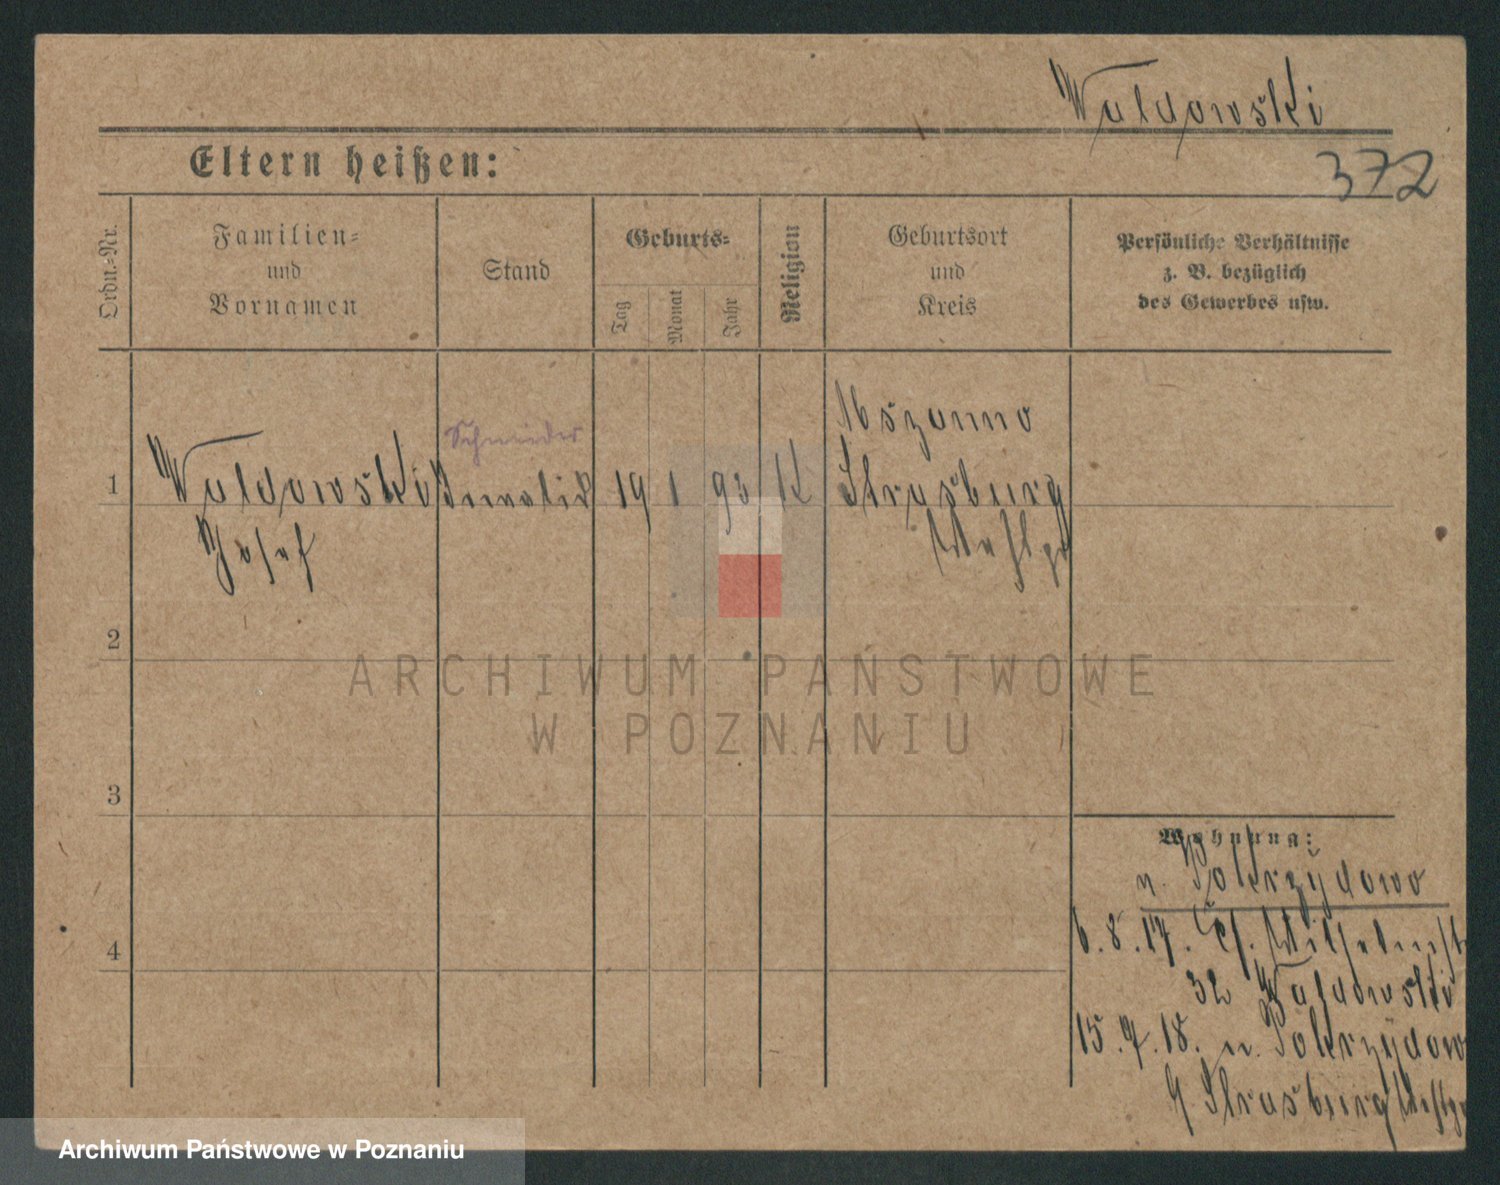 Waldowski
372
Eltern heißen:
Ordn.-Nr.
Familien-
und
Vornamen
Stand
Geburts-
Tag
Monat
Jahr
Religion
Geburtsort
und
Kreis
Persönliche Verhältnisse
z. B. bezüglich
des Gewerbes usw.
Mszanno
1 Waldowski 19 1 93 K Strasburg
Josef Westpr
2
3
4
Wohnung:
n. Pokrzydowo
6.8.17. Wilhelmst
32 Waldowski
15.9.18. n. Pokrzydow
Strasburg Westpr
ARCHIWUM PAŃSTWOWE
W POZNANIU
Archiwum Państwowe w Poznaniu